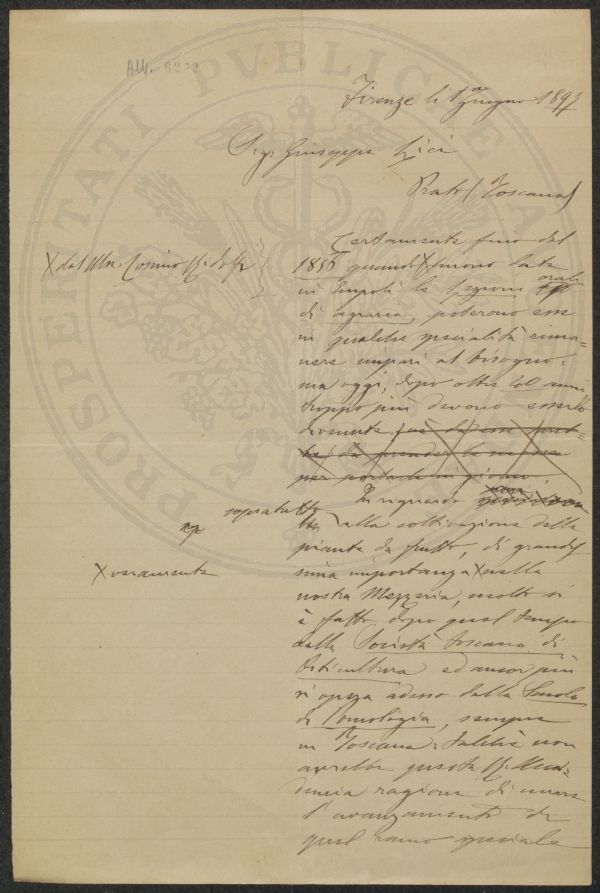 PROSPERITATI PVBLICAE
Firenze li 1 Giugno 1897
Sig. Giuseppe
Prato (Toscana)
Certamente fino dal
X dal Mse. Cosimo Ridolfi
1856 quando X furono date
in Empoli le Lezioni orali
di agraria, poterono esse
in qualche specialità rima-
nere impari al bisogno:
ma oggi, dopo oltre 40 anni
troppo più devono esserlo
divenute
per portarle in giorno.
In riguardo
sopratutto
alla coltivazione delle
piante da frutto, di grandis
sima importanza X nella
X veramente
nostra Mezzeria, molto si
è fatto dopo quel tempo
dalla Società toscana di
Orticultura ed ancor più
si opera adesso dalla Scuola
di Pomologia, sempre
in Toscana: talchè non
avrebbe questa R. Acca-
demia ragione di
l'avanzamento di
quel ramo speciale